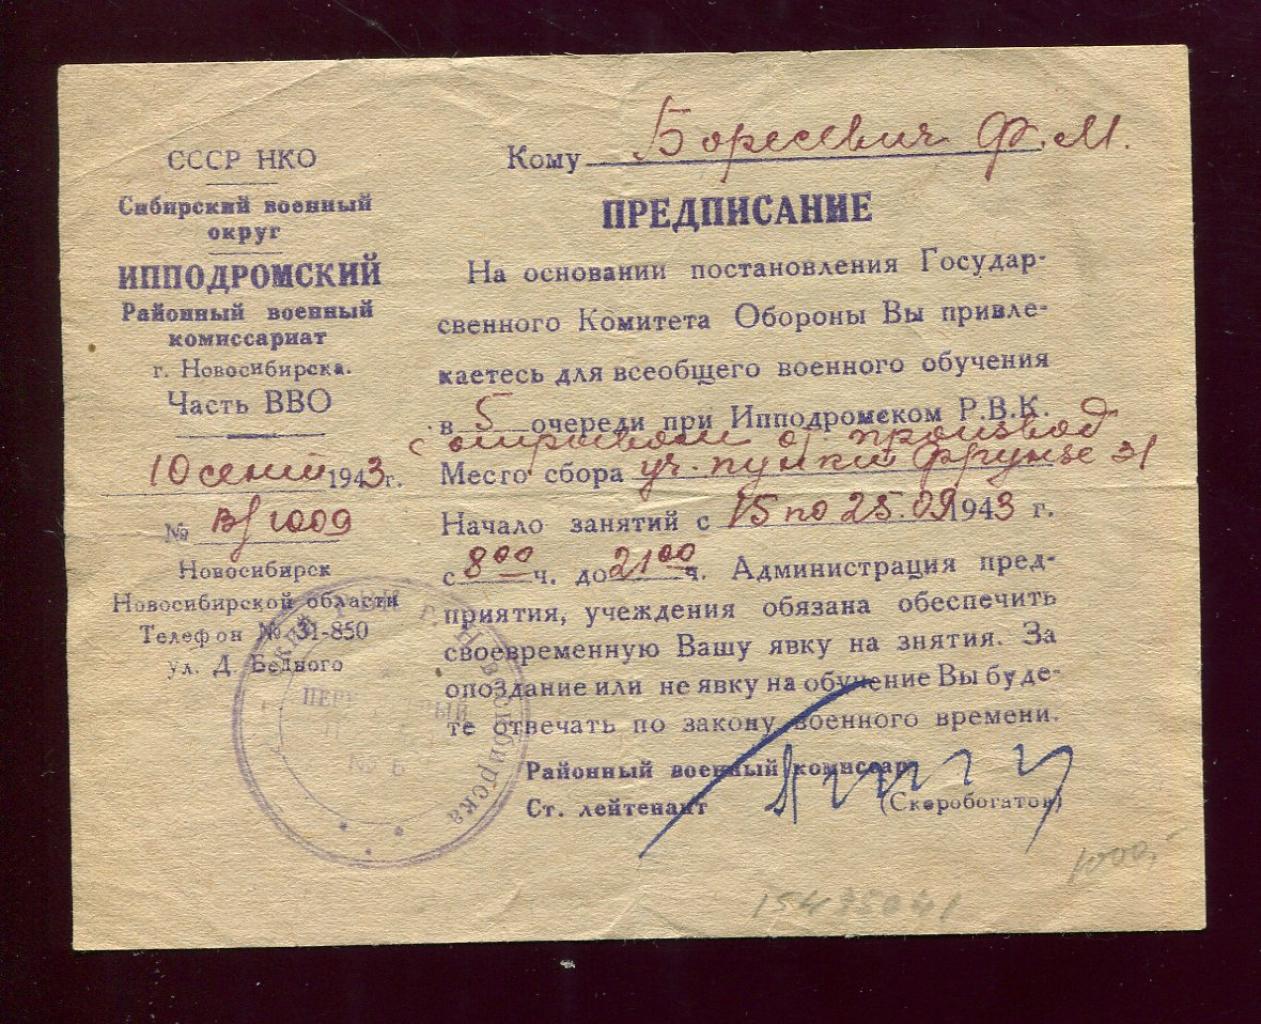 СССР НКО
Сибирский военный
округ
ИППОДРОМСКИЙ
Районный военный
комиссариат
г. Новосибирска.
Часть ВВО
10 сент 1943 г.
№ 1009
Новосибирск
Новосибирской области
Телефон № 31-850
ул. Д. Бедного
Кому Борисевич Ф. М.
ПРЕДПИСАНИЕ
На основании постановления Государ-
свенного Комитета Обороны Вы привле-
каетесь для всеобщего военного обучения
в 5 очереди при Ипподромском Р.В.К.
с отрывом от производ
Место сбора уч. пункт Фрунзе 31
Начало занятий с 15 по 25.09 1943 г.
с 8 00 ч. до 21 00 ч. Администрация пред-
приятия, учеждения обязана обеспечить
своевременную Вашу явку на знятия. За
опоздание или не явку на обучение Вы буде-
те отвечать по закону военного времени.
Районный военный комиссар
Ст. лейтенант (Скоробогатов)
г. Новосибирска
1000,-